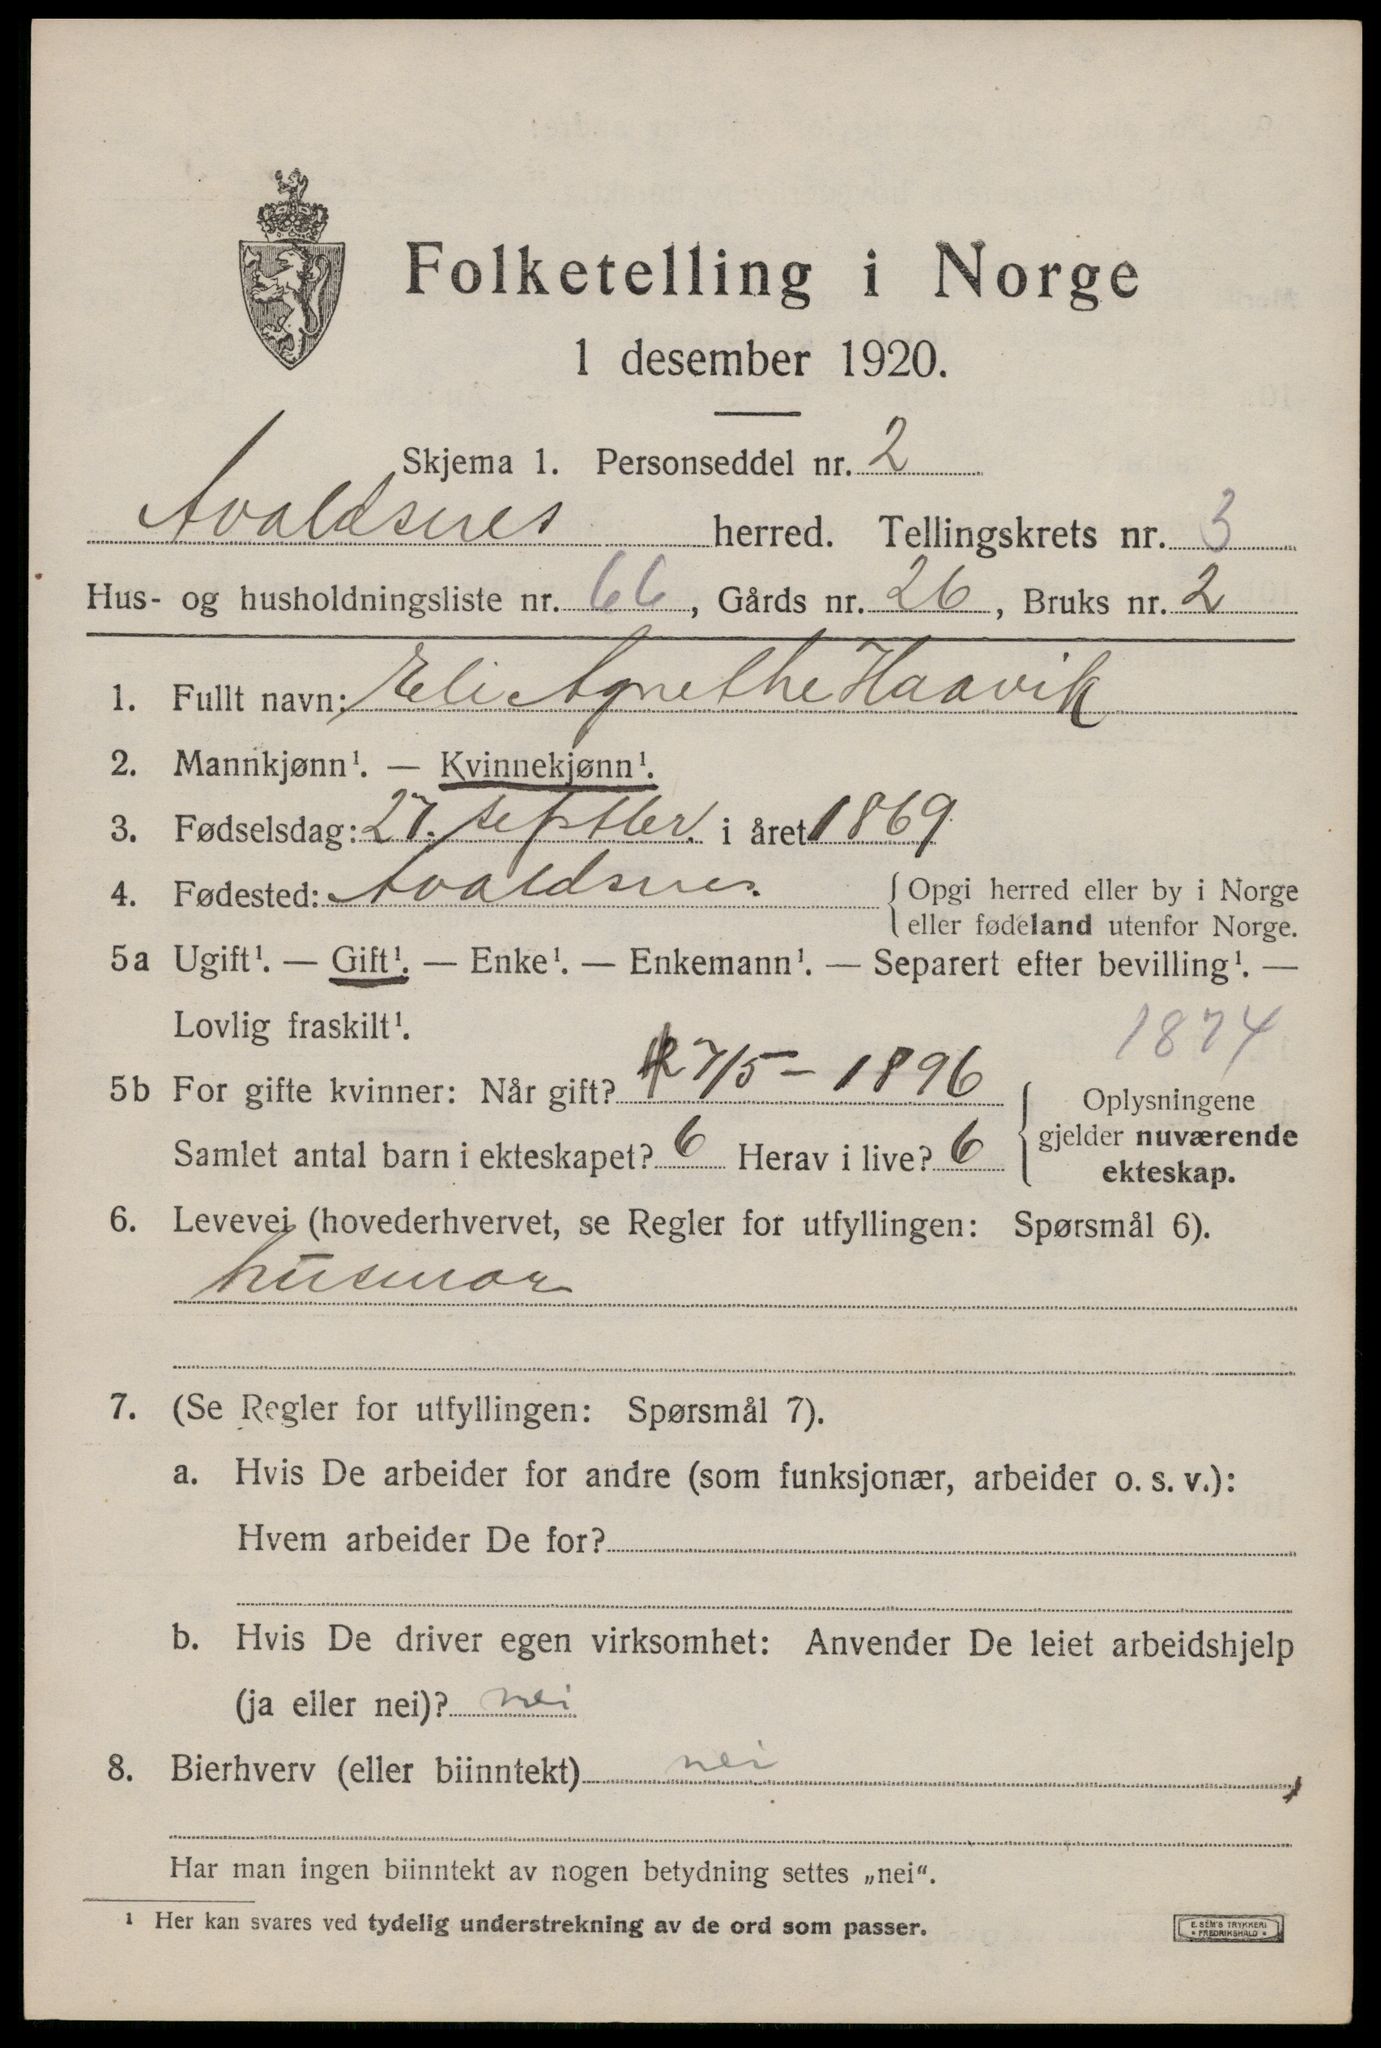 Folketelling i Norge
1 desember 1920.
Skjema 1. Personseddel nr. 2
Avaldsnes herred. Tellingskrets nr. 3
Hus- og husholdningsliste nr. 66, Gårds nr. 26, Bruks nr. 2
1. Fullt navn: Eli Agnethe Haavik
2. Mannkjønn¹. — Kvinnekjønn¹.
3. Fødselsdag: 27. septber. i året 1869
4. Fødested: Avaldsnes. { Opgi herred eller by i Norge
eller fødeland utenfor Norge.
5a Ugift¹. — Gift¹. — Enke¹. — Enkemann¹. — Separert efter bevilling¹. —
Lovlig fraskilt¹.
1874
5b For gifte kvinner: Når gift? 27/5 – 1896
Samlet antal barn i ekteskapet? 6 Herav i live? 6
Oplysningene
gjelder nuværende
ekteskap.
6. Levevei (hovederhvervet, se Regler for utfyllingen: Spørsmål 6).
husmor
7. (Se Regler for utfyllingen: Spørsmål 7).
a. Hvis De arbeider for andre (som funksjonær, arbeider o. s. v.):
Hvem arbeider De for?
b. Hvis De driver egen virksomhet: Anvender De leiet arbeidshjelp
(ja eller nei)? nei
8. Bierhverv (eller biinntekt) nei
Har man ingen biinntekt av nogen betydning settes „nei“.
¹ Her kan svares ved tydelig understrekning av de ord som passer.
E. SEM'S TRYKKERI
* FREDRIKSHALD *